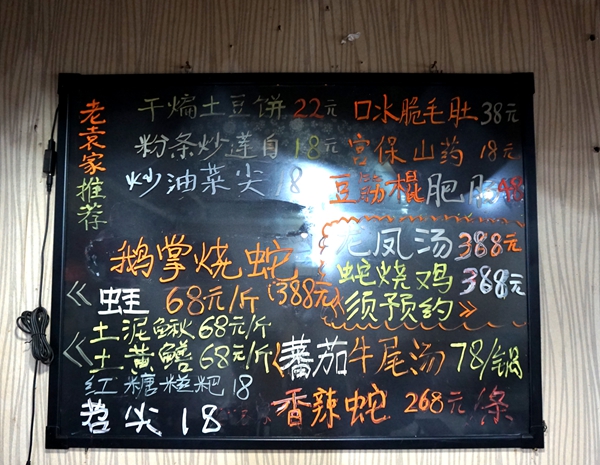 老袁家推荐
干煸土豆饼 22元
口水脆毛肚 38元
粉条炒莲白 18元
宫保山药 18元
炒油菜尖 18
豆筋棍肥肠 48
龙凤汤 388元
鹅掌烧蛇 (388元)
蛇烧鸡 368元
《须预约》
《蛙 68元/斤
土泥鳅 68元/斤
《土黄鳝 68元/斤
《蕃茄牛尾汤 78/锅
红糖糍粑 18
苕尖 18
香辣蛇 268元/条